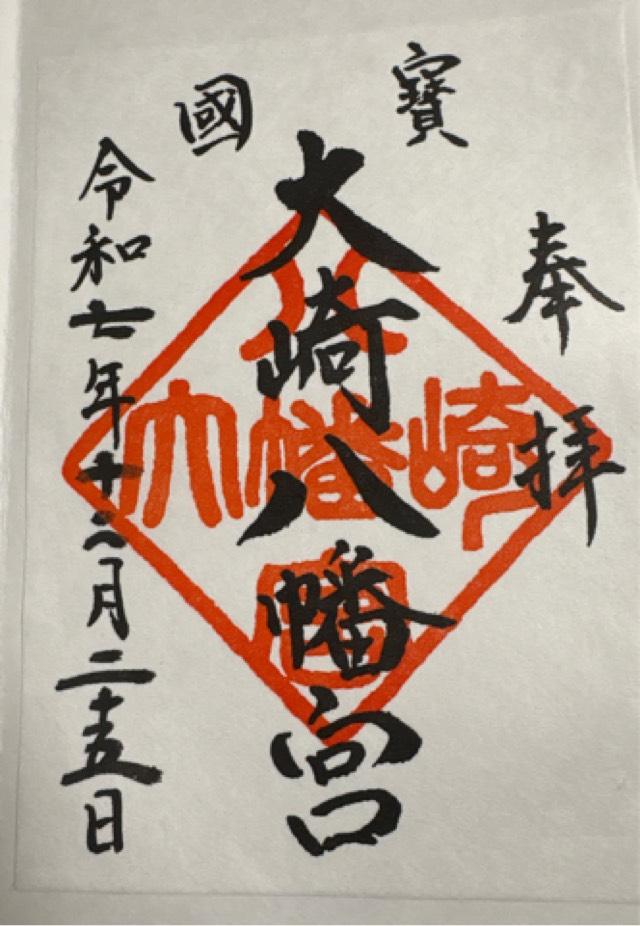 奉拝
寶國
大崎八幡宮
令和七年十二月二十五日